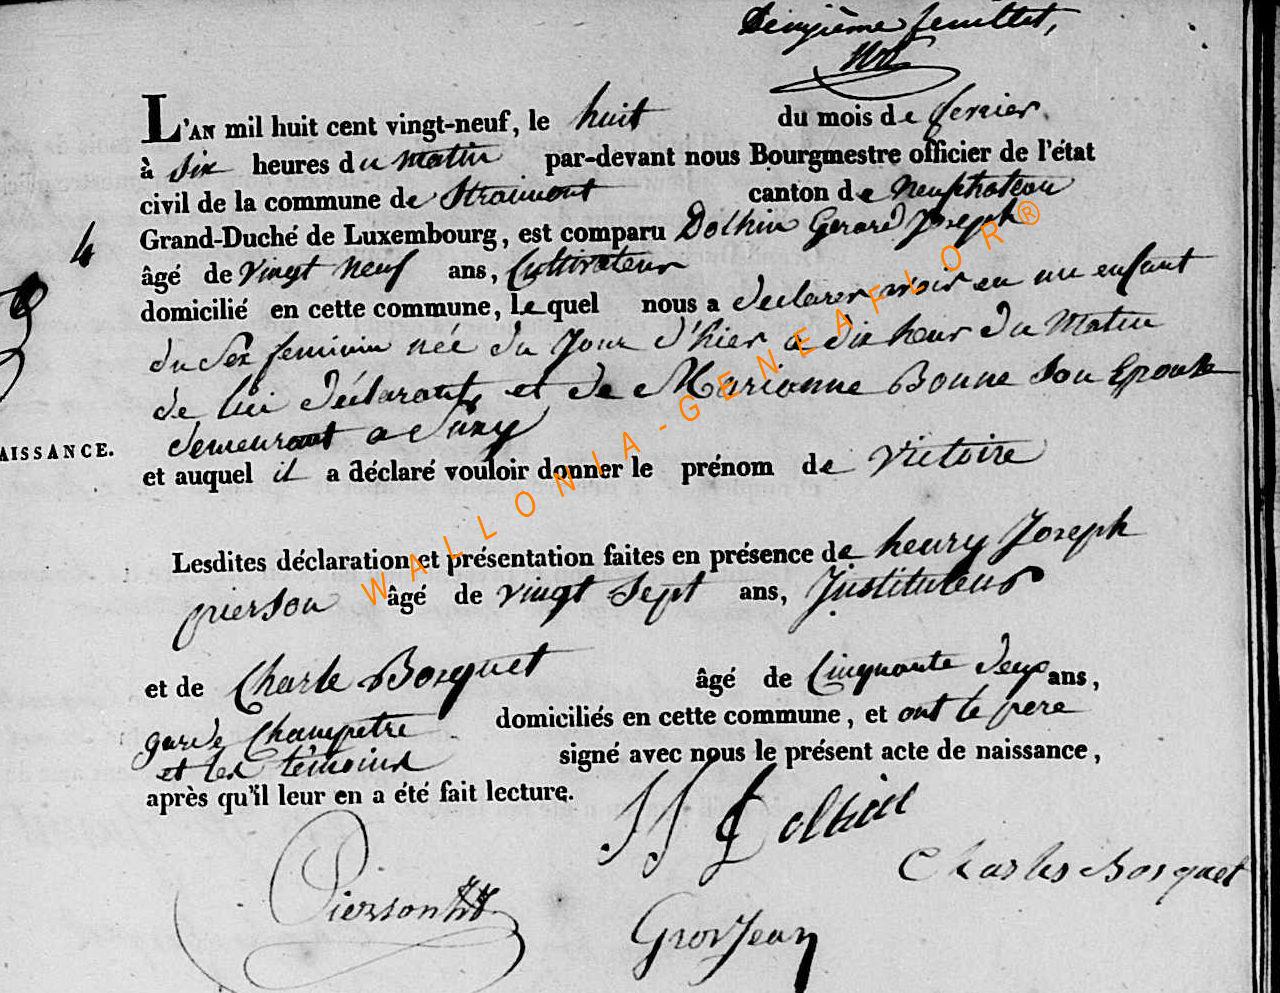 Deuxième feuillet,
L'AN mil huit cent vingt-neuf, le huit du mois de fevrier
à six heures du matin par-devant nous Bourgmestre officier de l'état
civil de la commune de Straimont canton de Neufchateau
Grand-Duché de Luxembourg, est comparu Dolhin Gerard Joseph
4
âgé de vingt neuf ans, Cultivateur
domicilié en cette commune, lequel nous a declarer avoir eu un enfant
du Sex feminin née du Jour d'hier a dix heur du Matin
de lui déclarant et de Marianne Bonne Son Epouse
demeurant a Suxy
AISSANCE.
et auquel il a déclaré vouloir donner le prénom de Victoire
Lesdites déclaration et présentation faites en présence de henry Joseph
pierson âgé de vingt Sept ans, Instituteur
et de Charle Bosquet âgé de Cinquante deux ans,
garde Champetre domiciliés en cette commune, et ont le pere
et les témoins signé avec nous le présent acte de naissance,
après qu'il leur en a été fait lecture.
Charles Bosquet
Pierson
GrosJean
WALLONIA-GENEAFLOR®